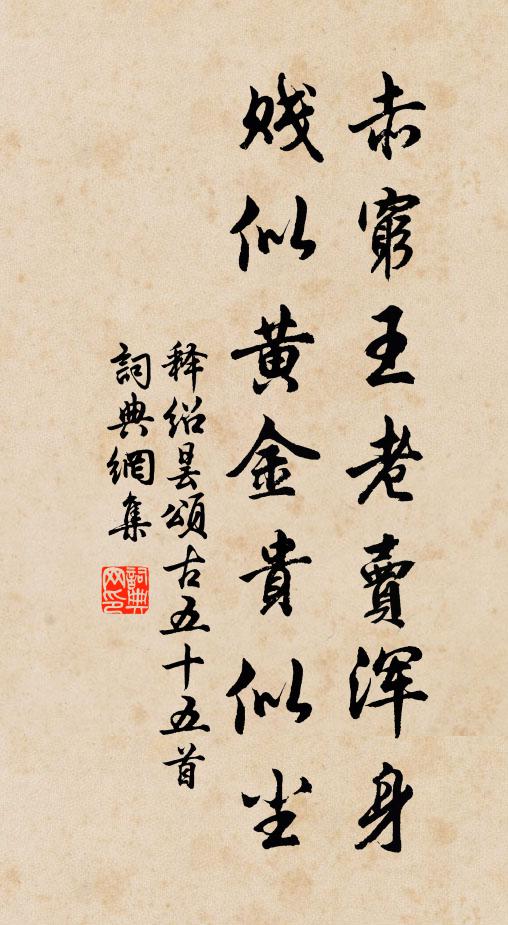 赤窮王老賣浑身
贱似黄金貴似尘
释绍昙頌古五十五首
詞典網集
詞典网印